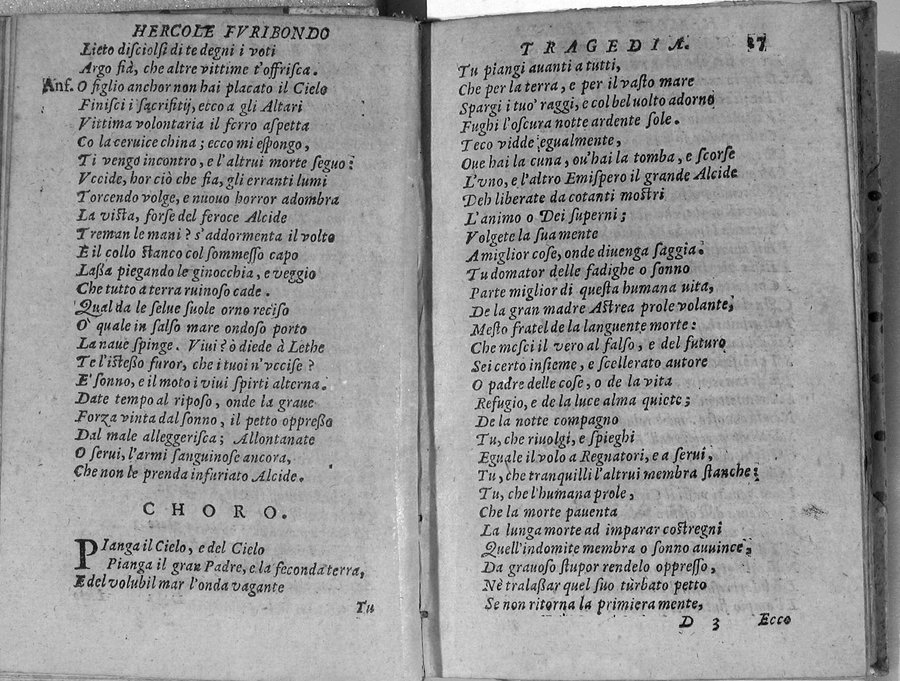 HERCOLE FVRIBONDO
Lieto disciolsi di te degni i voti
Argo fià, che altre vittime t'offrisca.
Anf. O figlio anchor non hai placato il Cielo
Finisci i sacrifitij, ecco a gli Altari
Vittima volontaria il ferro aspetta
Co la ceruice china; ecco mi espongo,
Ti vengo incontro, e l'altrui morte seguo:
Vccide, hor ciò che fia, gli erranti lumi
Torcendo volge, e nuouo horror adombra
La vista, forse del feroce Alcide
Treman le mani? s'addormenta il volto
E il collo stanco col sommesso capo
Lassa piegando le ginocchia, e veggio
Che tutto a terra ruinoso cade.
Qual da le selue suole orno reciso
O quale in salso mare ondoso porto
La naue spinge. Viui? ò diede à Lethe
Te l'istesso furor, che i tuoi n'vccise?
E' sonno, e il moto i viui spirti alterna.
Date tempo al riposo, onde la graue
Forza vinta dal sonno, il petto oppresso
Dal male alleggerisca; Allontanate
O serui, l'armi sanguinose ancora,
Che non le prenda infuriato Alcide.
CHORO.
PIanga il Cielo, e del Cielo
Pianga il gran Padre, e la feconda terra,
E del volubil mar l'onda vagante
Tu
TRAGEDIA. 27
Tu piangi auanti a tutti,
Che per la terra, e per il vasto mare
Spargi i tuo' raggi, e col bel uolto adorno
Fughi l'oscura notte ardente sole.
Teco vidde egualmente,
Oue hai la cuna, ou'hai la tomba, e scorse
L'vno, e l'altro Emispero il grande Alcide
Deh liberate da cotanti mostri
L'animo o Dei superni;
Volgete la sua mente
A miglior cose, onde diuenga saggia.
Tu domator delle fadighe o sonno
Parte miglior di questa humana uita,
De la gran madre Astrea prole volante,
Mesto fratel de la languente morte:
Che mesci il vero al falso, e del futuro
Sei certo insieme, e scellerato autore
O padre delle cose, o de la vita
Refugio, e de la luce alma quiete;
De la notte compagno
Tu, che riuolgi, e spieghi
Eguale il volo a Regnatori, e a serui,
Tu, che tranquilli l'altrui membra stanche:
Tu, che l'humana prole,
Che la morte pauenta
La lunga morte ad imparar costregni
Quell'indomite membra o sonno auuince,
Da grauoso stupor rendelo oppresso,
Nè tralassar quel suo turbato petto
Se non ritorna la primiera mente,
D 3 Ecco